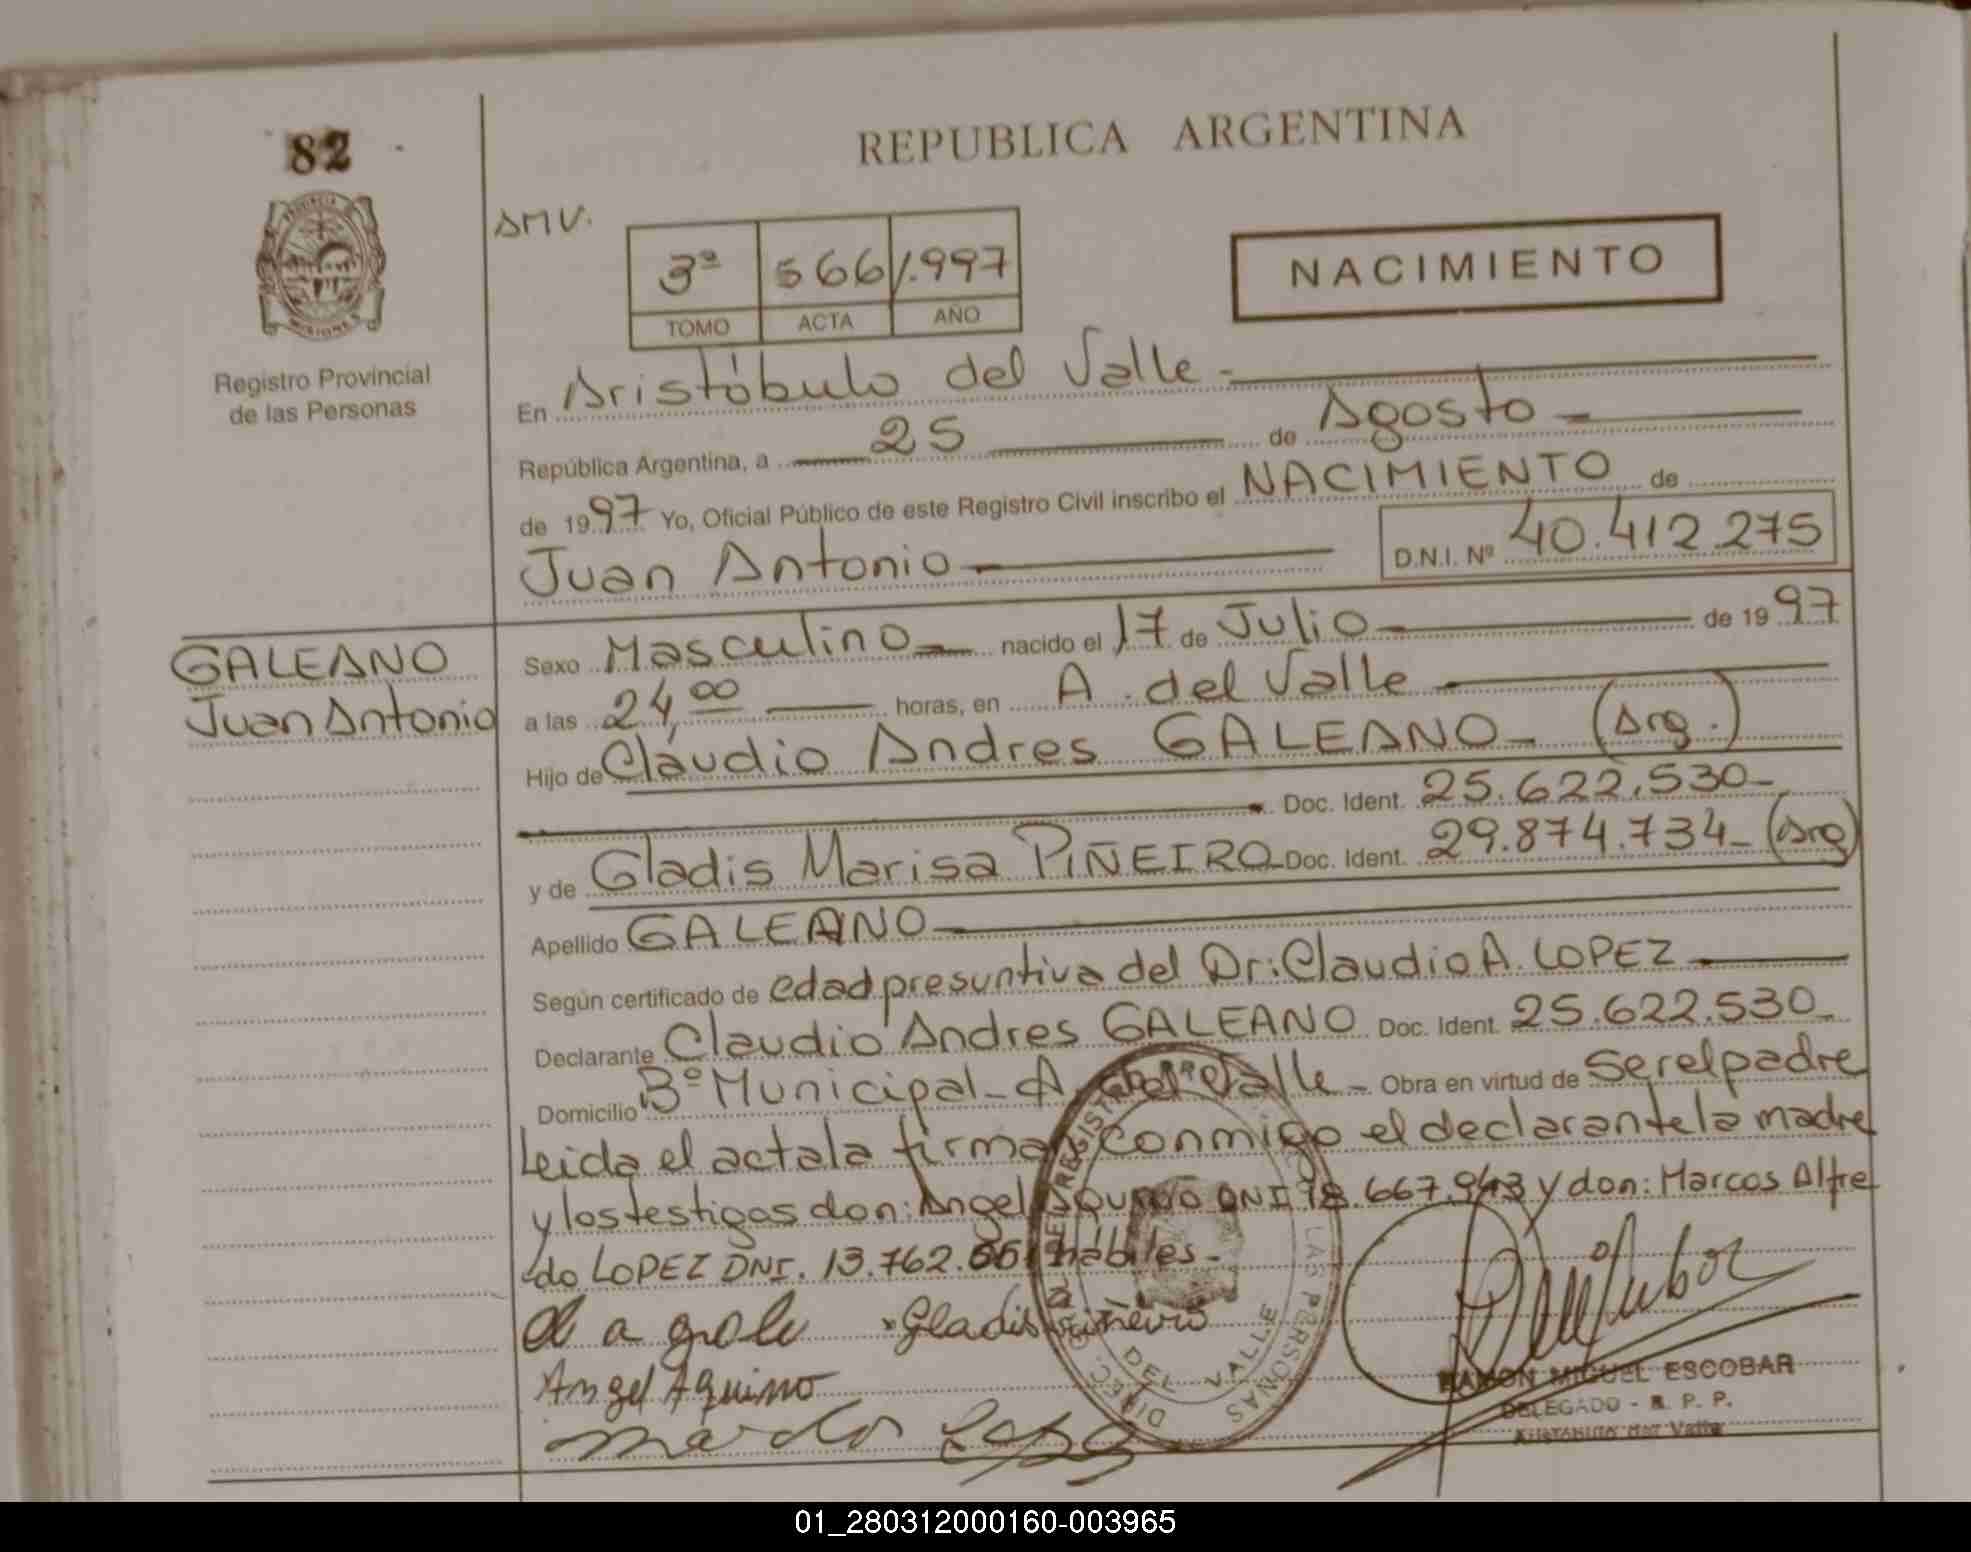 82
REPUBLICA ARGENTINA
PROVINCIA
MISIONES
Registro Provincial
de las Personas
AMV.
3ª 566 1.997
TOMO ACTA AÑO
NACIMIENTO
En Aristóbulo del Valle -
República Argentina, a 25 de Agosto
de 1997 Yo, Oficial Público de este Registro Civil inscribo el NACIMIENTO de
Juan Antonio D.N.I. Nº 40.412.275
GALEANO
Juan Antonio
Sexo Masculino nacido el 17 de Julio de 1997
a las 24,00 horas, en A. del Valle
Hijo de Claudio Andres GALEANO (Arg.)
Doc. Ident. 25.622.530
y de Gladis Marisa PIÑEIRO Doc. Ident. 29.874.734 (Arg)
Apellido GALEANO
Según certificado de edad presuntiva del Dr: Claudio A. LOPEZ
Declarante Claudio Andres GALEANO Doc. Ident. 25.622.530
Domicilio Bº Municipal - A. del Valle - Obra en virtud de ser el padre
Leida el acta la firman conmigo el declarante la madre
y los testigos don: Angel DNI 18.667.943 y don: Marcos Alfre
do LOPEZ DNI. 13.762. hábiles -
Gladis Piñeiro
Angel Aquino
RAMON MIGUEL ESCOBAR
DELEGADO - R. P. P.
Aristóbulo del Valle
LAS PERSONAS
DEL VALLE
01_280312000160-003965